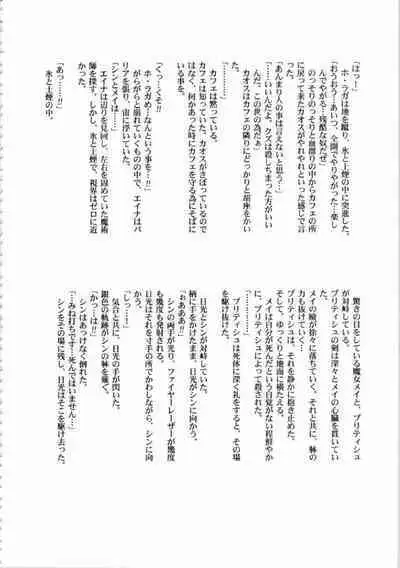 「はっ」
　ホ・ラガは地を蹴り、氷と土煙の中に突進した。
「おうおう…あいつ、全開でやりやがった…楽し
んでやがる…残酷な奴だぜ」
　のっそりのっそりと血溜りの中からカフェの所
に戻って来たカオスがやれやれといった感じで言
った。
「あんまり人の事は言えないと思う？」
「……いいんだよ、クズは殺しちまった方がいい
んだ、この世の為だぁ」
　カオスはカフェの隣りにどっかりと胡座をかい
た。
「………」
　カフェは黙っている。
　カフェは知っていた、カオスがさばっているので
はなく、何かあった時にカフェを守る為にそばに
いる事を。
「くっ…くそ!!
　ホ・ラガめ…なんという事を…!!」
　がらがらと崩れていくものの中で、エイナはバ
リアを張り、宙に浮いていた。
「シンとメイは…!!」
　エイナは辺りを見回し、左右を固めていた魔術
師を探す。しかし、氷と土煙で、視界はゼロに近
かった。
　氷と土煙の中。
「あっ……!!」
　驚きの目をしている魔女メイと、ブリティシュ
が対峙している。
　ブリティシュの剣は深々とメイの心臓を貫いてい
る。
　メイの瞼が徐々に落ちていく、それと共に、躰の
力も抜けていく…
　ブリティシュは、それを静かに抱き止めた。
　そして、ゆっくりと地面に横たえる。
　メイは自分が死んだという自覚がない程鮮やか
に、ブリティシュによって殺された。
「………」
　ブリティシュは死体に深く礼をすると、その場
を駆け抜けた。
　日光とシンが対峙していた。
　柄に手をかけたまま、日光がシンに向かう。
「ぁぁああ!!」
　シンの両手が光り、ファイヤーレーザーが幾度
も幾度も発射される。
　日光はそれを寸手の所でかわしながら、シンに向
かう。
　気合と共に、日光の手が閃いた。
　銀色の軌跡がシンの躰を薙ぐ。
「かっ…!!」
　シンはあっけなく倒れた。
「…みね打ちです…死んではいません…」
　シンをその場に残し、日光はそこを駆け去った。